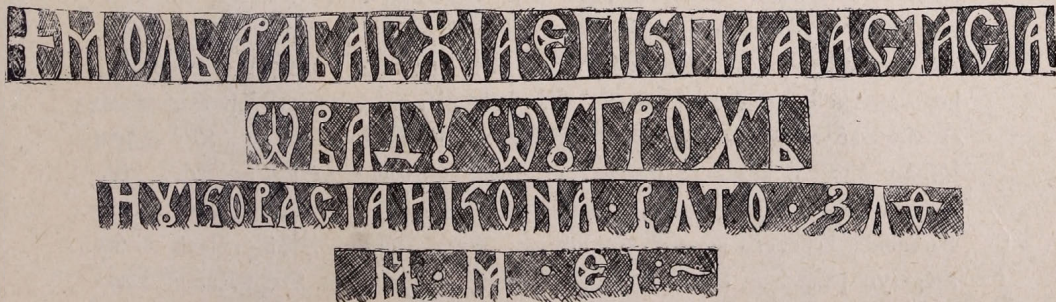 +МОЛБАРАБАБЖІА·ЄПІКПААНАСТАСІА
ѠВАДꙊѠꙊГРОХЬ
НꙊКОВАСІАНКОНА·ВЛТО·ЗЛѲ
М·М·ЄІ:~